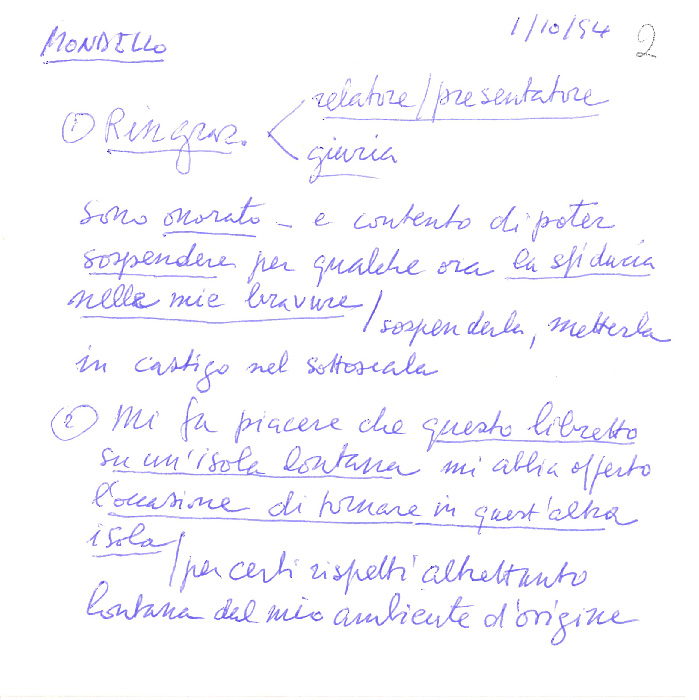 MONDELLO
1/10/94 2
relatore/presentatore
① Ringraz. <
giuria
sono onorato – e contento di poter
sospendere per qualche ora la sfiducia
nelle mie bravure / sospenderla, metterla
in castigo nel sottoscala
② Mi fa piacere che questo libretto
su un'isola lontana mi abbia offerto
l'occasione di tornare in quest'altra
isola / per certi rispetti altrettanto
lontana dal mio ambiente d'origine